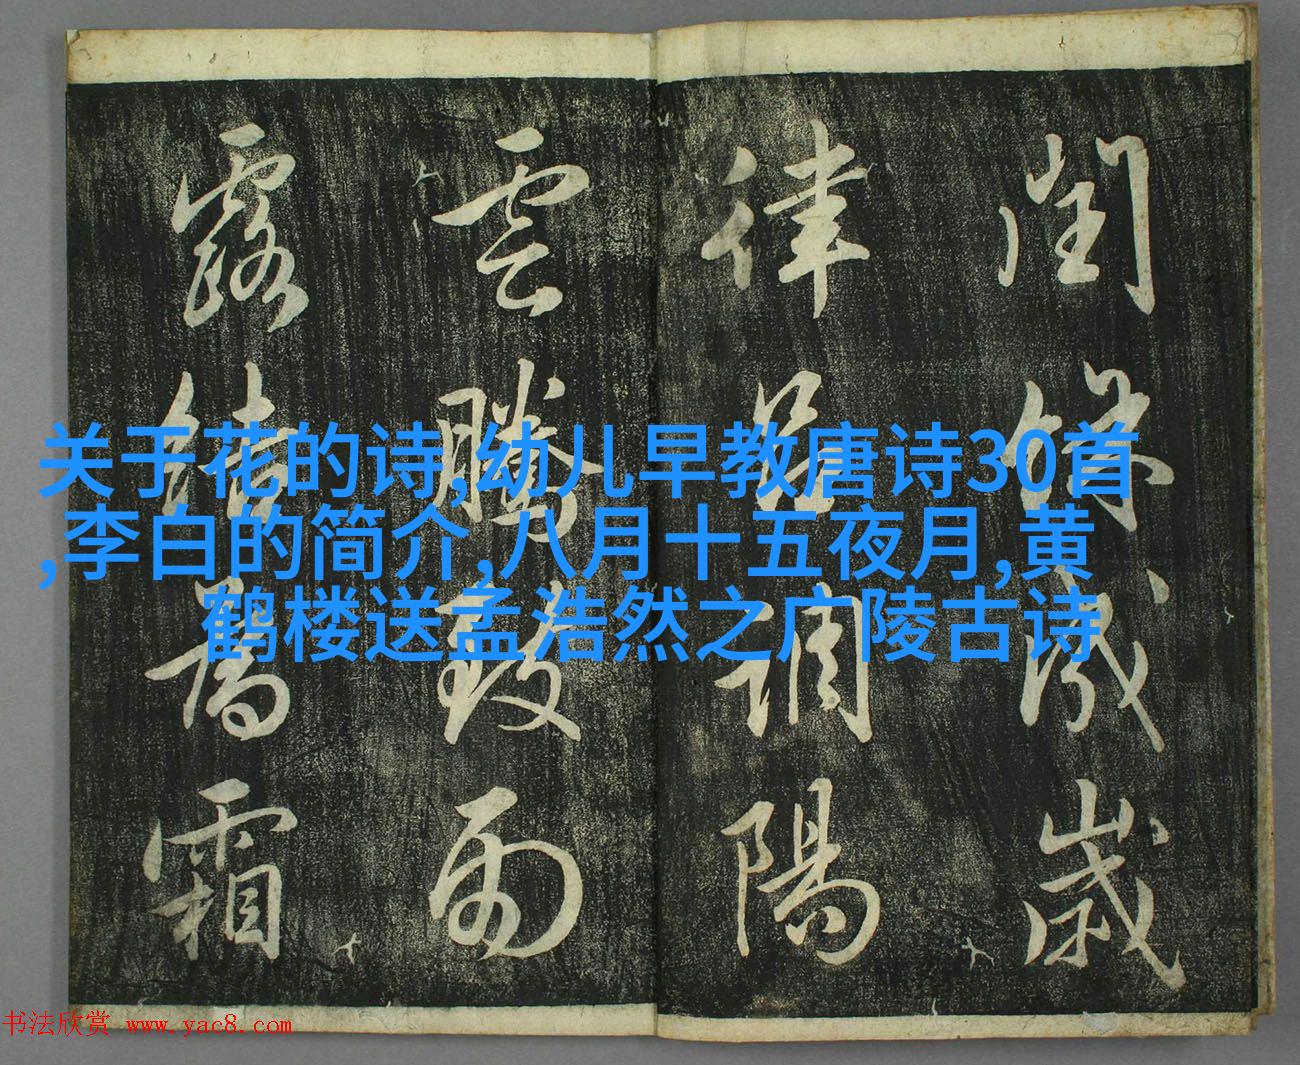 閏餘成歲
律呂調陽
雲騰致雨
露結為霜
关于花的诗,幼儿早教唐诗30首
,李白的简介,八月十五夜月,黄
鹤楼送孟浩然之广陵古诗
书法欣赏 www.yac8.com